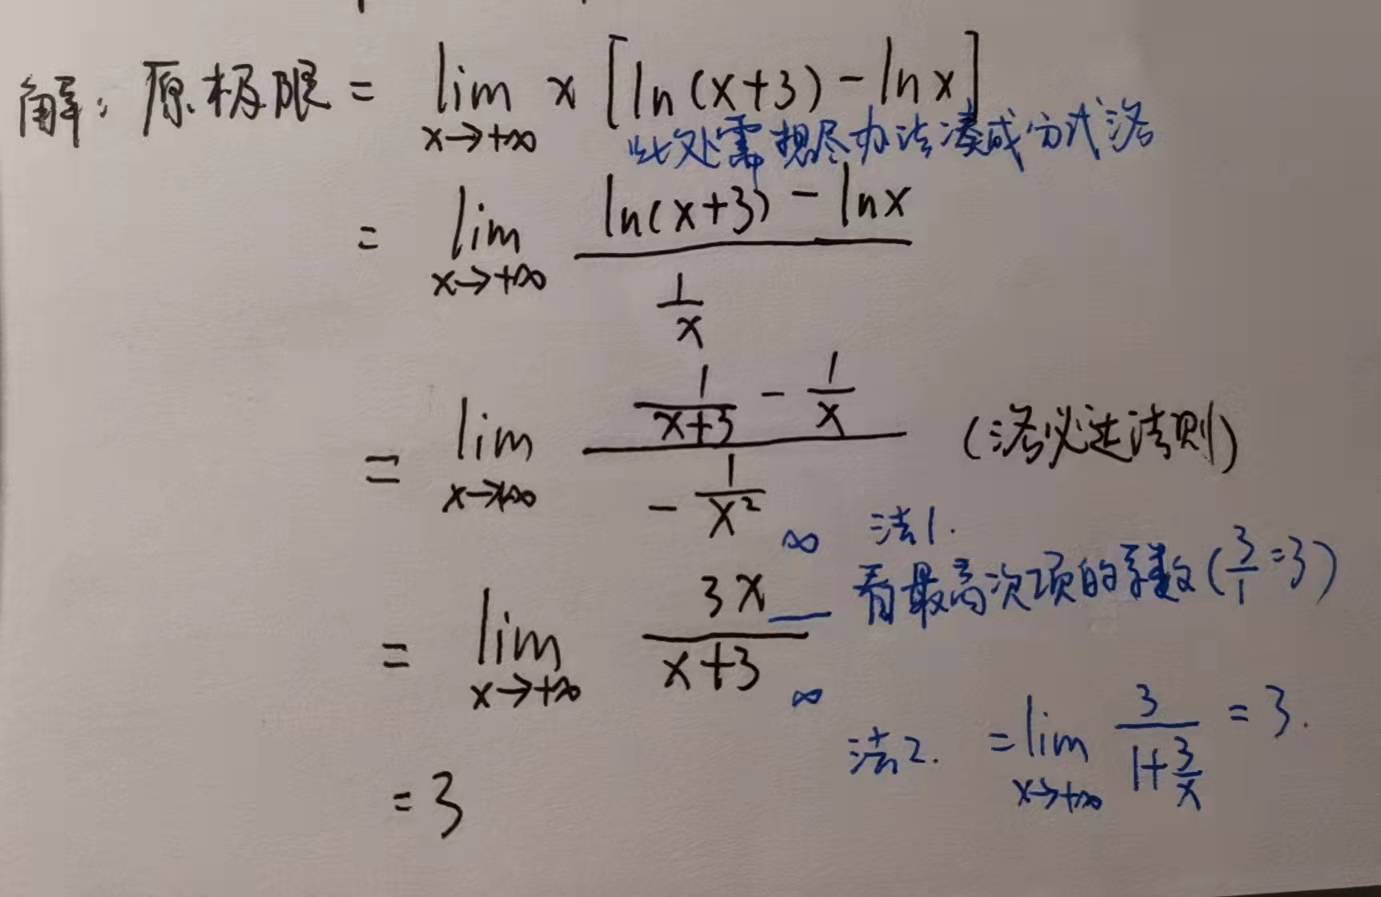 解：原极限 = lim x→+∞ x [ln(x+3) - lnx]
此处需想尽办法凑成分式洛
= lim x→+∞ (ln(x+3) - lnx) / (1/x)
= lim x→+∞ (1/(x+3) - 1/x) / (-1/x²) (洛必达法则)
法1.
= lim x→+∞ 3x/(x+3) ∞/∞ 看最高次项的系数(3/1=3)
法2. = lim x→+∞ 3/(1+3/x) = 3.
= 3